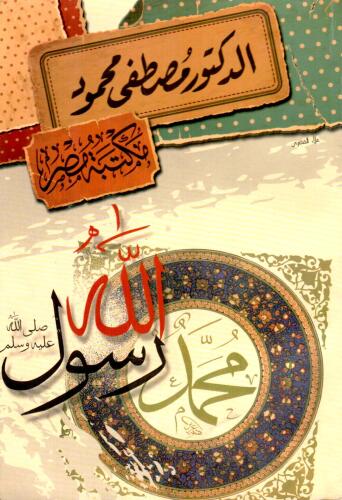 الدكتور مصطفى محمود
مكتبة مصر
محمد
رسول الله
صلى الله
عليه وسلم